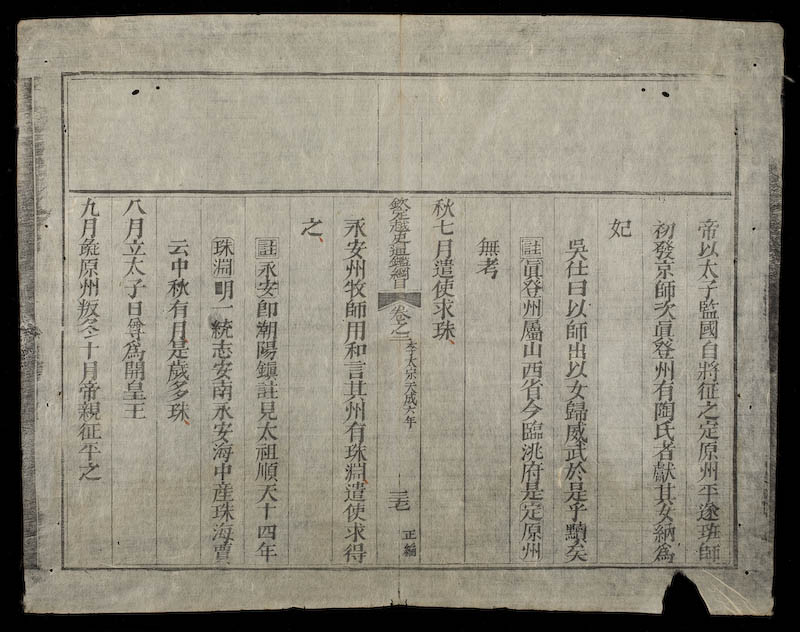 帝以太子監國自將征之定原州平遂班師
初發京師次眞登州有陶氏者獻其女納爲
妃
吳仕曰以師出以女歸威武於是乎黷矣
註眞登州屬山西省今臨洮府是定原州
無考
秋七月遣使求珠
欽定越史通鑑綱目 卷之二 李太宗天成六年 三七 正編
永安州牧師用和言其州有珠淵遣使求得
之
註永安卽潮陽鎮註見太祖順天十四年
珠淵明一統志安南永安海中産珠海賈
云中秋有月是歲多珠
八月立太子日尊爲開皇王
九月 原州叛冬十月帝親征平之